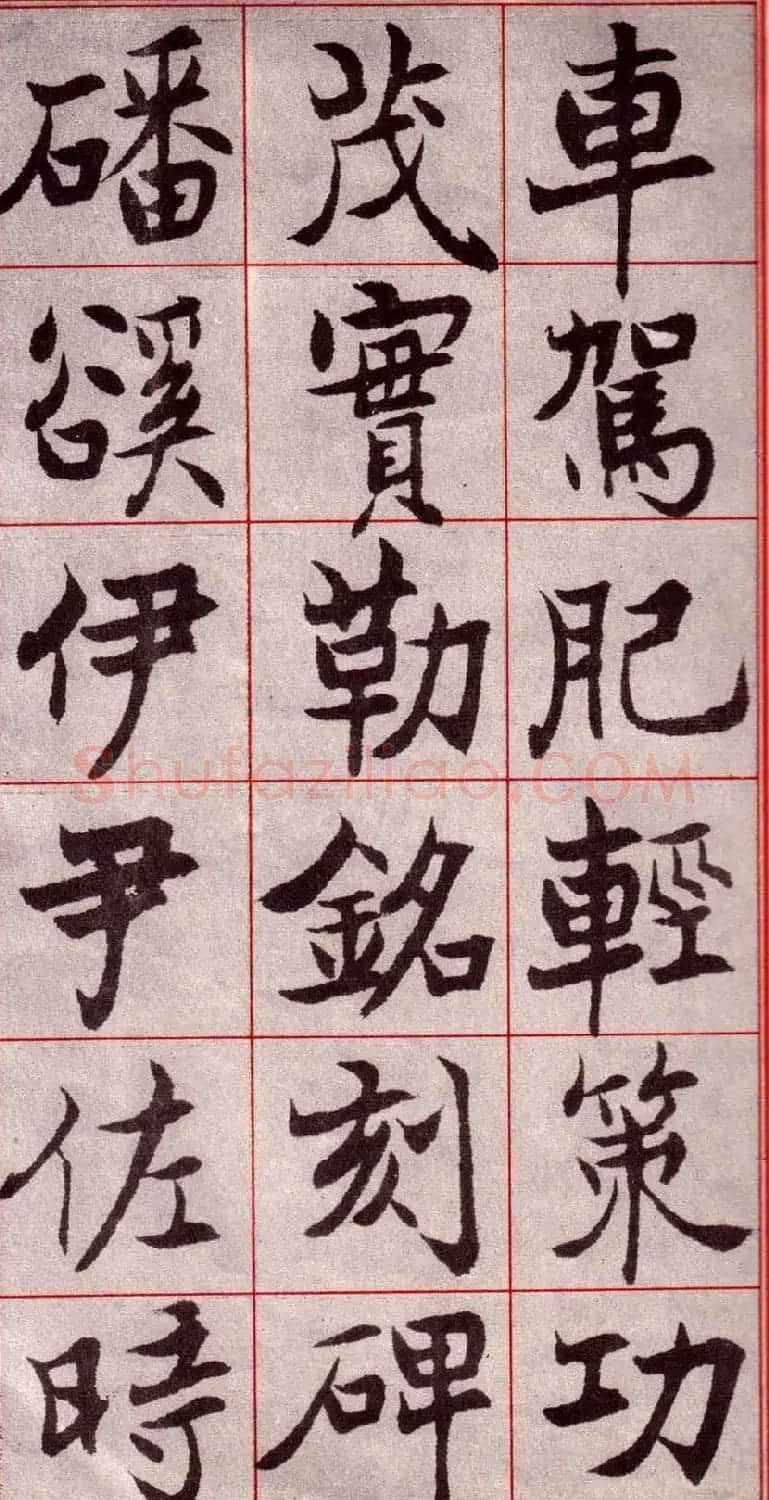 車駕肥輕策功
茂實勒銘刻碑
磻谿伊尹佐時
Shufaziliao.COM